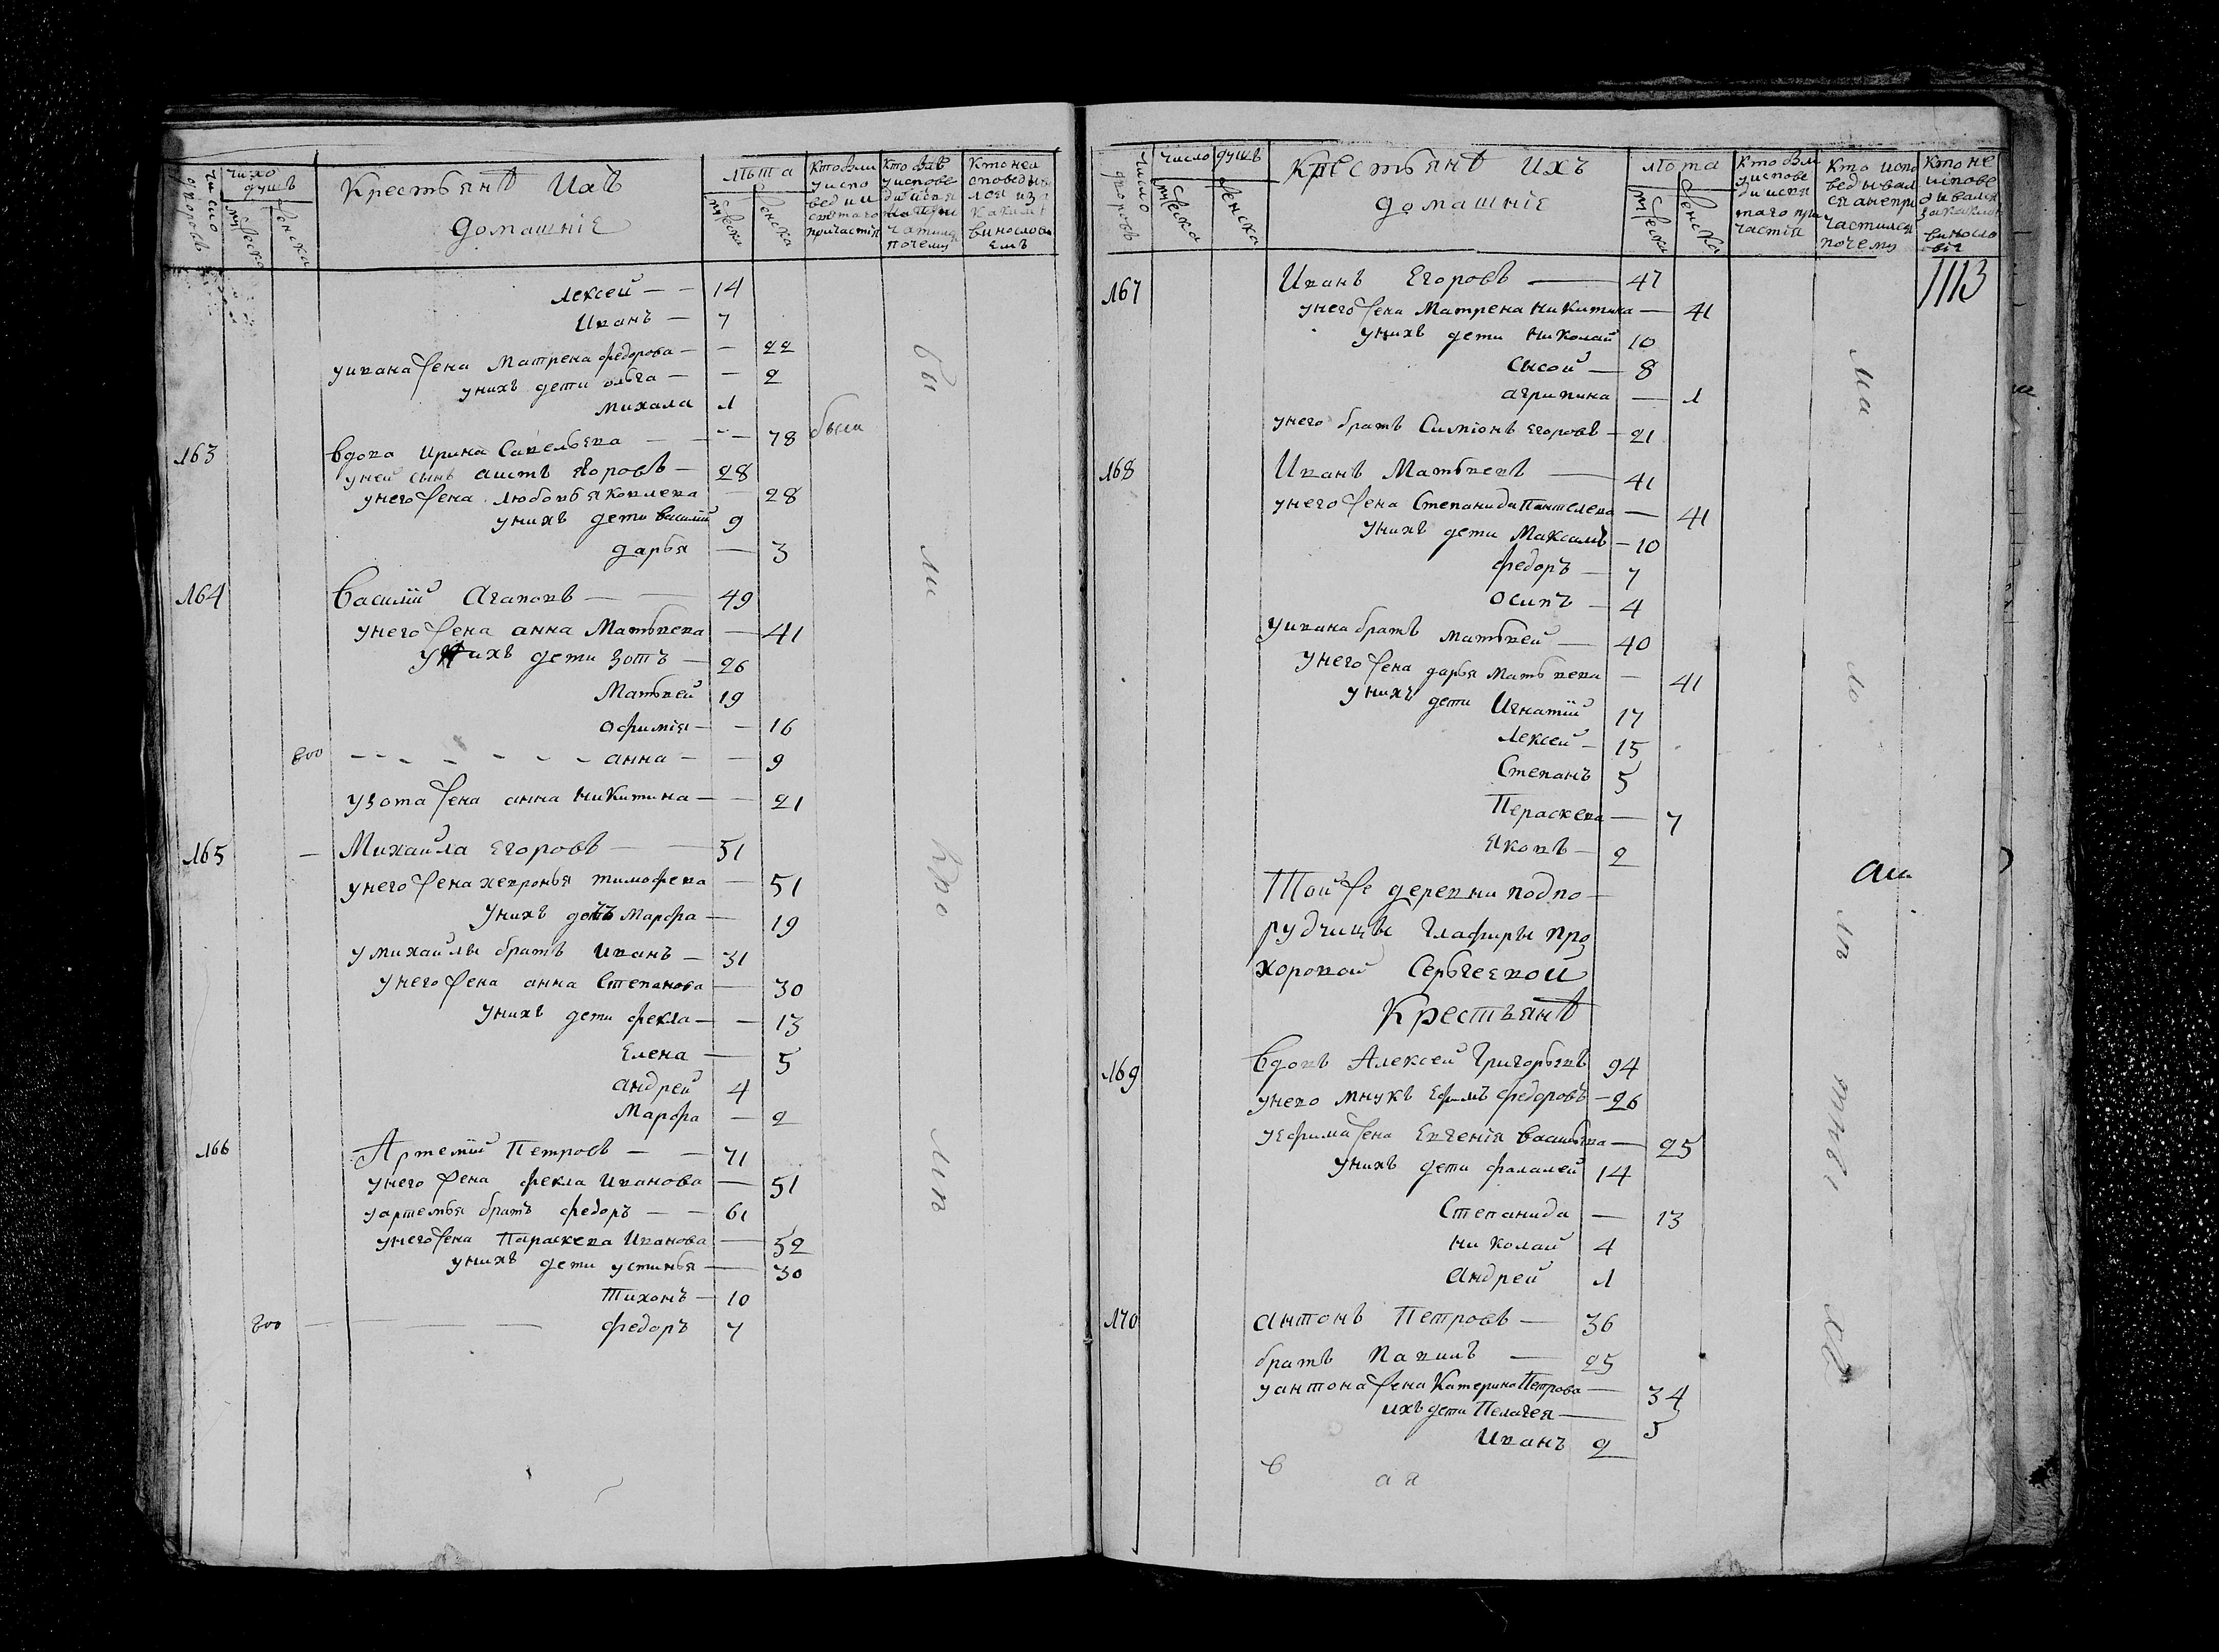 число дворовъ
число душъ
мужеска
женска
Крестьянѣ Ихъ
домашніе
лѣта
мужеска
женска
Кто были
у испо
веди и
святаго
причастія
Кто былъ
у испове
ди и
почему
Кто не и
споведы
вался
винослові
емъ
Лексей — — 14
Иванъ — 7
у ивана жена Матрена федорова — — 22
у нихъ дети ольга — — 2
михала 1
163 вдова ирина Савельева — — 78 были
у ней сынъ — 28
у него жена любовь яковлева — 28
у нихъ дети василій 9
дарья — 3
164 Василій Агаповъ — 49
у него жена анна Матвѣева — 41
у нихъ дети зотъ — 26
Матвѣей 19
офимія — — 16
анна — — 9
у зота жена анна никитина — — 21
165 — Михаила Егоровъ — 51
у него жена хевронья тимофева — 51
у нихъ дочь марфа — 19
у михаилы братъ иванъ — 31
у него жена анна Степанова — 30
у нихъ дети фекла — — 13
Елена — 5
андрей 4
Марфа — 2
166 Артемій Петровъ — — 71
у него жена фекла иванова — 51
у артемья братъ федоръ — — 61
у него жена Параскева Иванова — 52
у нихъ дети устинья — 30
Тихонъ — 10
федоръ 7
число дворовъ
число душъ
мужеска
женска
Крестьянѣ ихъ
домашніе
лѣта
мужеска
женска
Кто были
у испове
ди и свя
таго при
частія
Кто испо
ведывал
ся а не при
частился
почему
Кто не
испове
дывался
за каким
винosло
віе
1113
167 Иванъ Егоровъ — 47
у него жена Матрена никитина — 41
у нихъ дети николай 10
сысой — 8
агрипина — 1
у него братъ Симіонъ егоровъ — 21
168 Иванъ Матвѣевъ — 41
у него жена Степанида Пантелева — 41
у нихъ дети Максимъ — 10
федоръ — 7
осипъ — 4
у ивана братъ матвѣей — 40
у него жена дарья матвѣева — 41
у нихъ дети Игнатій 17
Лексей — 15
Степанъ 5
Пераскева — 7
Яковъ — 2
Той же деревни подпо
рудчицы Глафиры про
хоровой
Крестьянѣ
169 вдовъ Алексей Григорьевъ 94
у него мнукъ Ефимъ федоровъ — 26
у ефима жена Евгенія васильева — 25
у нихъ дети фалалей 14
Степанида — 13
николай 4
Андрей 1
170 антонъ Петровъ — 36
братъ павилъ — 25
у антона жена Катерина Петрова — 34
ихъ дети Пелагея — 5
Иванъ 2